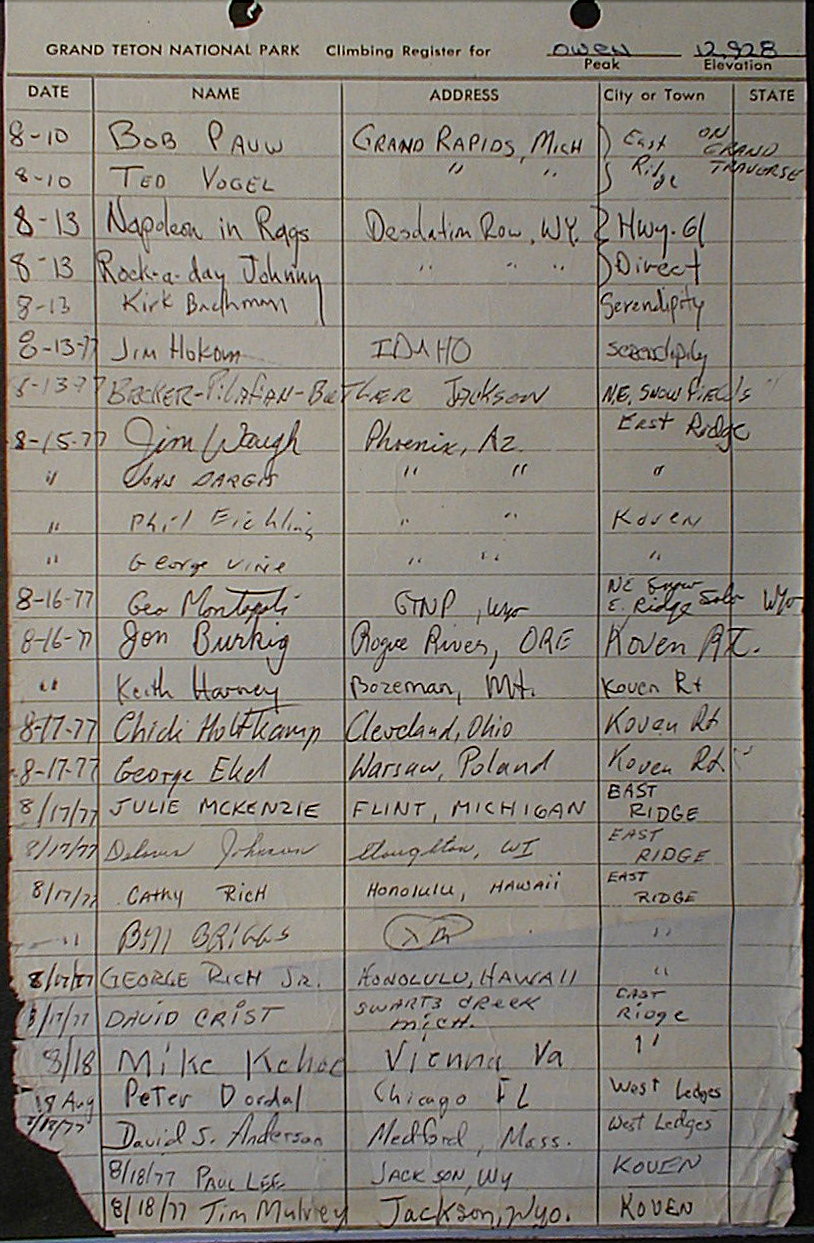 GRAND TETON NATIONAL PARK Climbing Register for OWEN 12,928
Peak Elevation
DATE NAME ADDRESS City or Town STATE
8-10 BOB PAUW GRAND RAPIDS, MICH } East ON GRAND
8-10 TED VOGEL " " } Ridge TRAVERSE
8-13 Napoleon in Rags Desolation Row, WY. } Hwy. 61
8-13 Rock-a-day Johnny " " " } Direct
8-13 Kirk Bachman Serendipity
8-13-77 Jim Hokom IDAHO Serendipity
8-13-77 BECKER-PILAFIAN-BUTLER JACKSON N.E. SNOWFIELDS "
8-15-77 Jim Waugh Phoenix, Az. EAST Ridge
" DARGIS " " "
" Phil Eichling " " Koven
" George Vine " " "
8-16-77 Geo Montopoli GTNP, Wyo NE Snow
E. Ridge Solo Wyo
8-16-77 Jon Burkig Rogue River, ORE Koven RT.
" Keith Harney Bozeman, Mt. Koven Rt
8-17-77 Chick Holtkamp Cleveland, Ohio Koven Rt
8-17-77 George Warsaw, Poland Koven Rt. "
8/17/77 JULIE MCKENZIE FLINT, MICHIGAN EAST
RIDGE
8/17/77 Delores Johnson Stoughton, WI EAST
RIDGE
8/17/77 CATHY RICH HONOLULU, HAWAII EAST
RIDGE
" Bill BRIGGS "
8/17/77 GEORGE RICH JR. HONOLULU, HAWAII "
8/17/77 DAVID CRIST SWARTZ CREEK EAST
MICH. Ridge
8/18 Mike Kehoe Vienna Va "
18 Aug Peter Dordal Chicago IL West Ledges
8/18/77 David S. Anderson Medford, Mass. West Ledges
8/18/77 PAUL LEE JACKSON, WY KOVEN
8/18/77 Jim Mulvey Jackson, Wyo. KOVEN